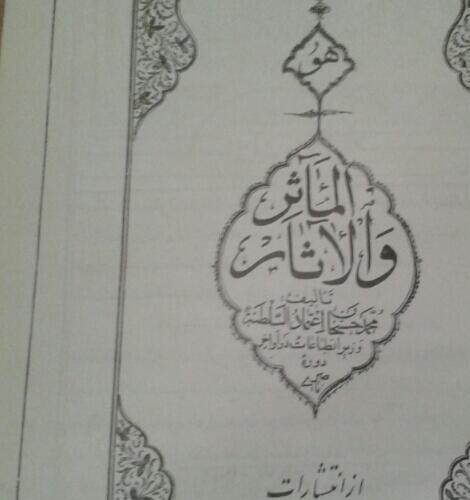 هو
المآثر
والآثار
تألیف
محمد حسنخان اعتماد السلطنة
وزیر انطباعات در اواخر
دورهٔ
ناصری
از انتشارات